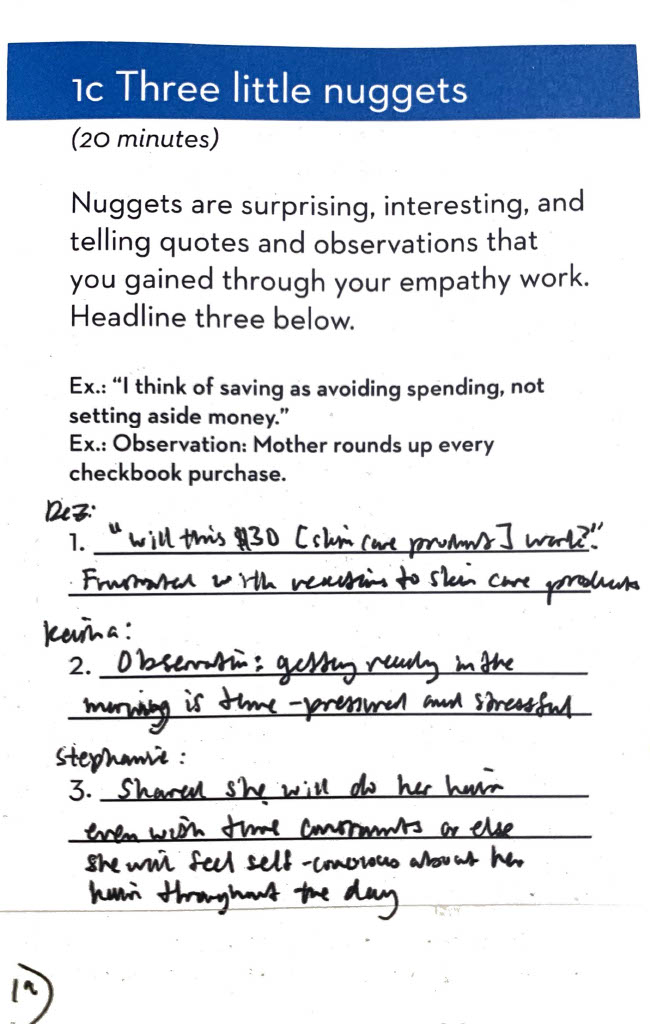 1c Three little nuggets
(20 minutes)
Nuggets are surprising, interesting, and
telling quotes and observations that
you gained through your empathy work.
Headline three below.
Ex.: “I think of saving as avoiding spending, not
setting aside money.”
Ex.: Observation: Mother rounds up every
checkbook purchase.
Dez:
1. "will this $30 [skin care product] work?"
Frustrated with reactions to skin care products
Keisha:
2. Observation: getting ready in the
morning is time-pressured and stressful
Stephanie:
3. Shared she will do her hair
even with time constraints or else
she will feel self-conscious about her
hair throughout the day